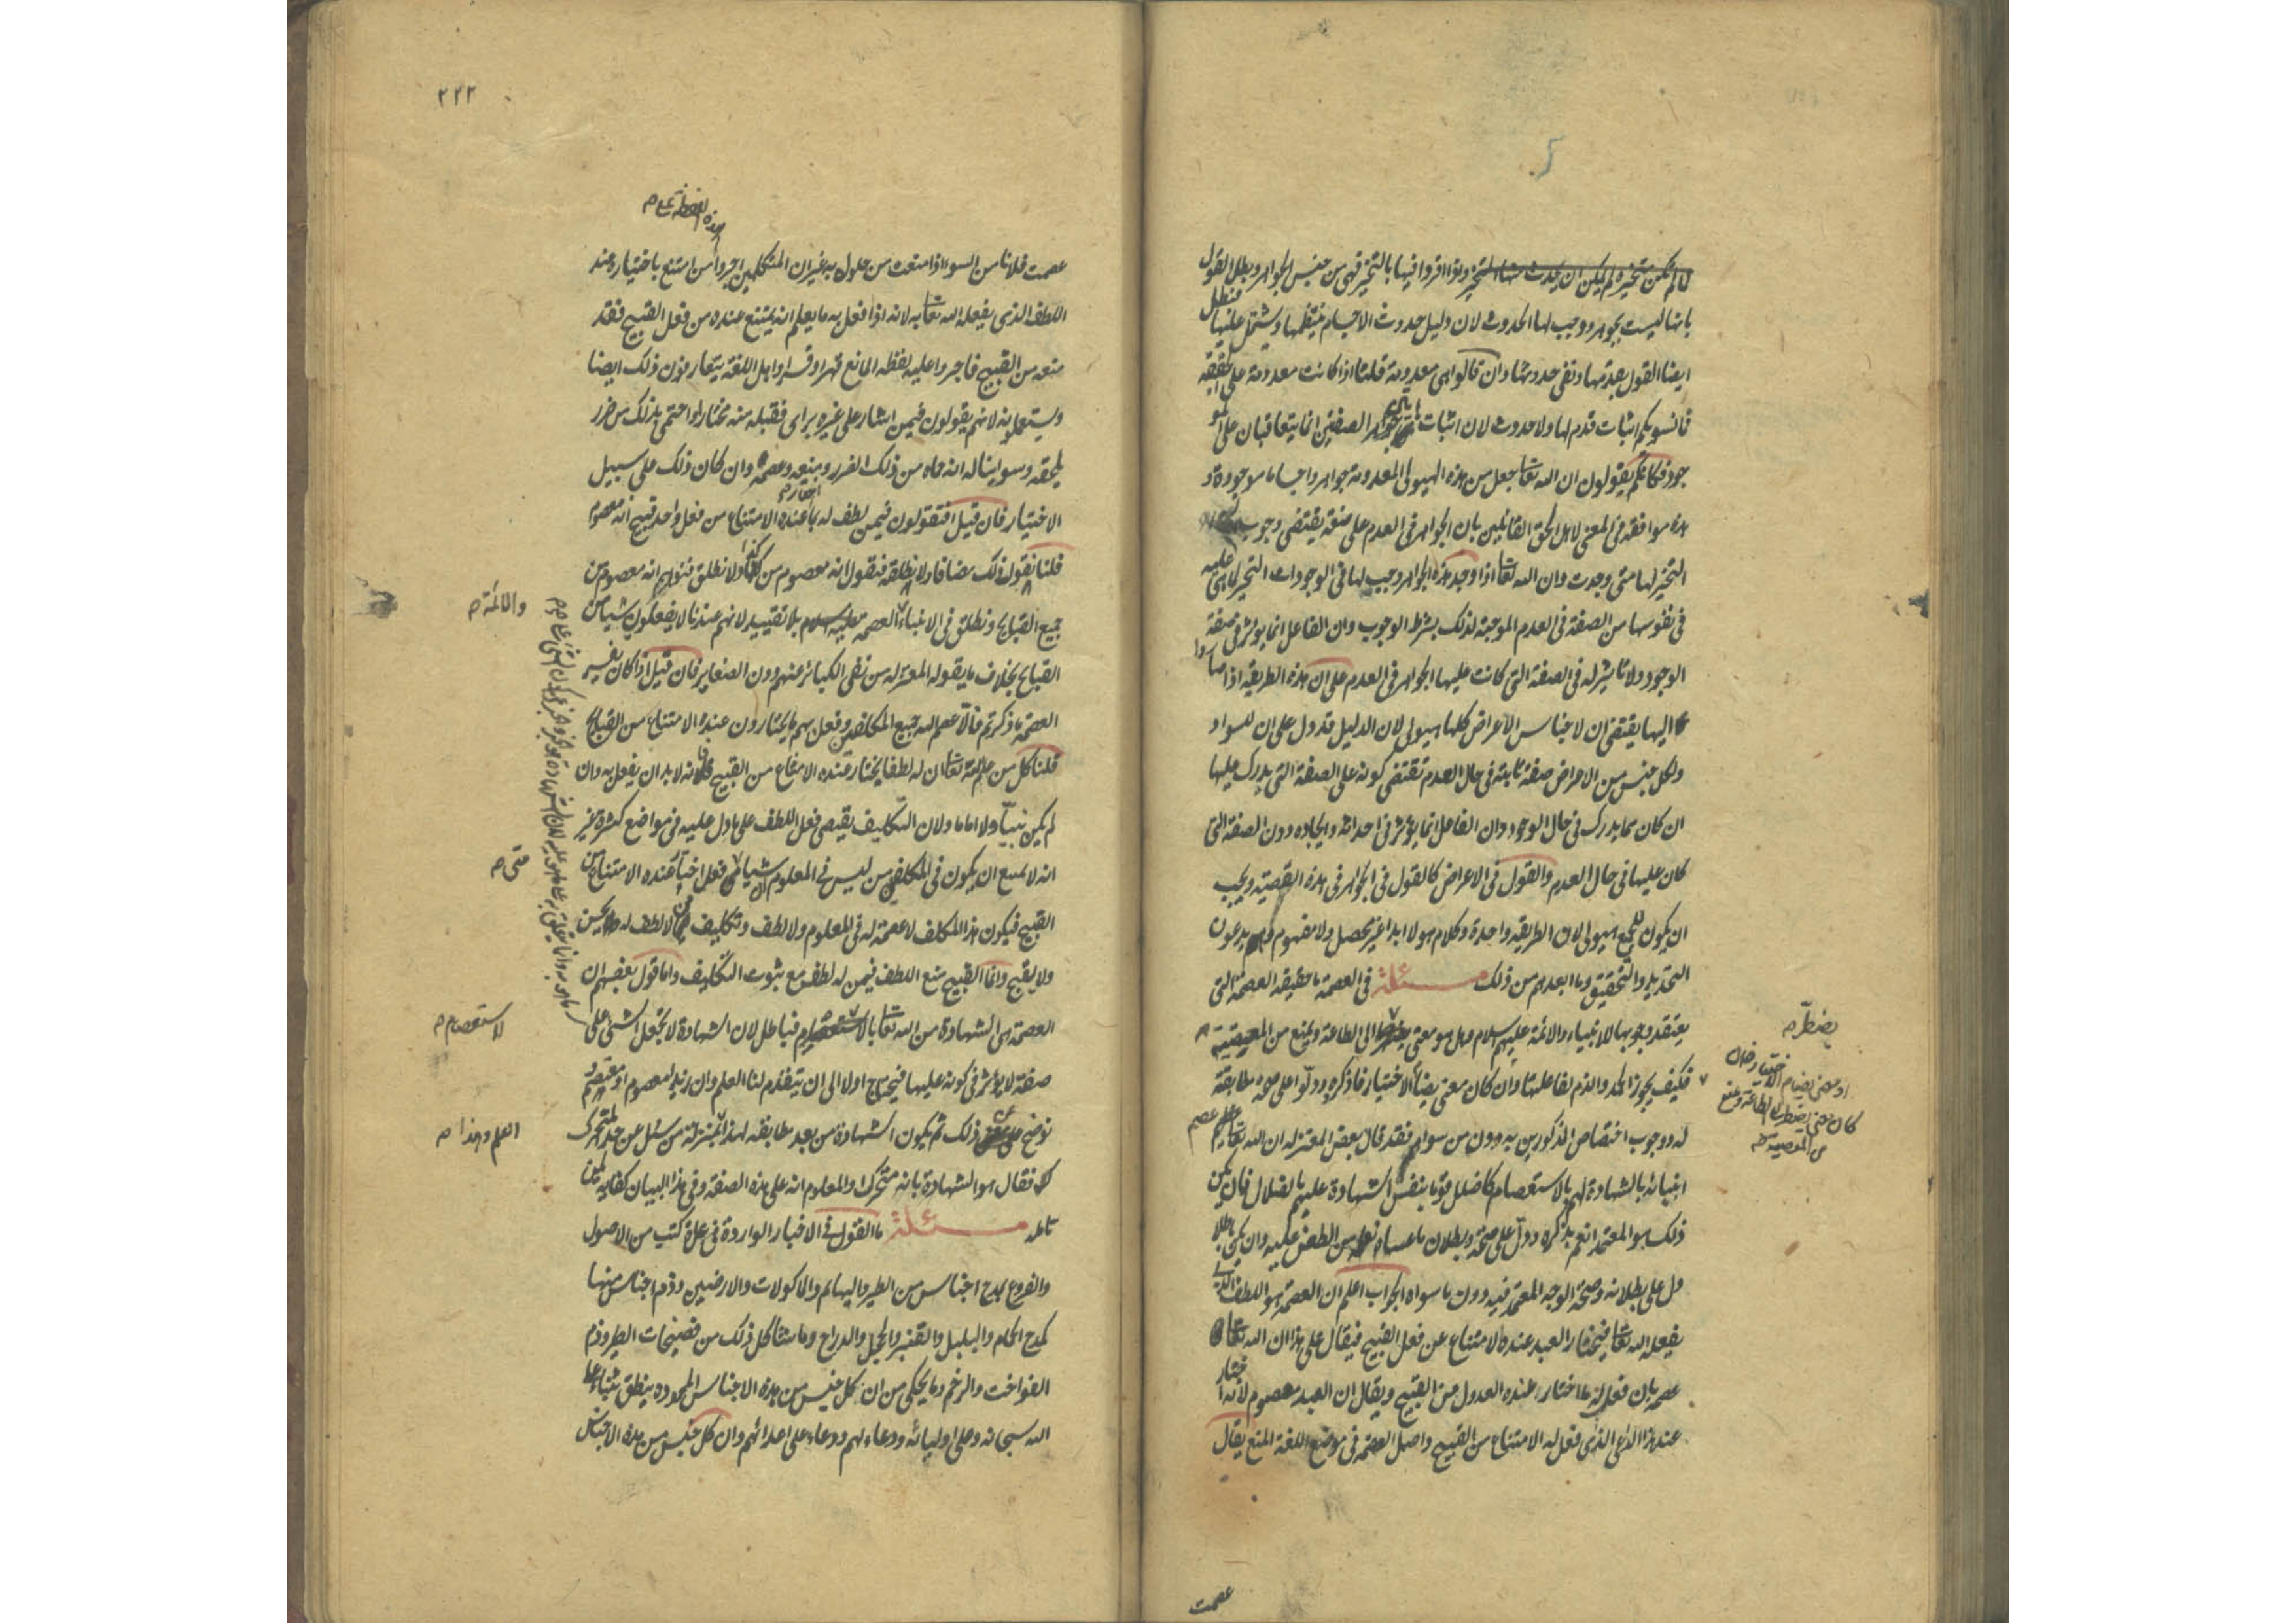 لم تكن متحيزة لم يكن ان يحدث منها المتحيز واذا اقروا فيها بالتحيز فهي من جنس الجواهر وبطل القول
بانها ليست بجوهر ووجب لها الحدوث لان دليل حدوث الاجسام ينتظمها ويشتمل عليها فبطل
ايضا القول بقدمها ونفى حدوثها وان قالوا هي معدومة قلنا اذا كانت معدومة على الحقيقة
فما نسومكم اثبات قدم لها ولا حدوث لان اثبات الصفتين انما يتعاقبان على المو
جود فكانكم يقولون ان الله تعا جعل من هذه الهيولى المعدومة جواهر واجساما موجودة و
هذه موافقة في المعنى لاهل الحق القائلين بان الجواهر في العدم على صفة يقتضى وجوب
التحيز لها متى وجدت وان الله تعا اذا اوجد هذه الجواهر وجب لها في الوجودات التحيز لما هي عليه
في نفوسها من الصفة في العدم الموجبة لذلك بشرط الوجوب وان الفاعل انما يؤثر في صفة
الوجود ولا تاثير له في الصفة التي كانت عليها الجواهر في العدم على ان هذه الطريقة اذا صاروا
اليها يقتضى ان لاجناس الاعراض كلها هيولى لان الدليل قد دل على ان للسواد
ولكل جنس من الاعراض صفة ثابتة في حال العدم تقتضى كونه على الصفة التي يدرك عليها
ان كان مما يدرك في حال الوجود وان الفاعل انما يؤثر في احداثه وايجاده دون الصفة التي
كان عليها في حال العدم والقول في الاعراض كالقول في الجواهر في هذه القضية ويجب
ان يكون للجميع هيولى لان الطريقة واحدة وكلام هولا ابدا غير محصل ولا مفهوم وهم يدعون
التحديد والتحقيق وما ابعدهم من ذلك مسئلة في العصمة ما حقيقة العصمة التي
يعتقد وجوبها للانبياء والائمة عليهم السلام وهل هو معنى يضطر الى الطاعة ويمنع من المعصية
فكيف يجوز الحمد والذم لفاعلها وان كان معنى يضام الاختيار فاذكروه ودلوا على صحة مطابقة
له ووجوب اختصاص المذكورين به دون من سواهم فقد قال بعض المعتزلة ان الله تعا عصم
انبيائه بالشهادة لهم بالاستعصام كما ضلل قوما بنفس الشهادة عليهم بالضلال فان يكن
ذلك هو المعتمد انعم بذكره ودل على صحته وبطلان ما عساه فعله من الطعن عليه وان يكن باطلا
دل على بطلانه وصحة الوجه المعتمد فيه دون ما سواه الجواب اعلم ان العصمة هو اللطف الذي
يفعله الله تعا فيختار العبد عنده الامتناع عن فعل القبيح فيقال على هذا ان الله تعا
عصمه بان فعل له ما اختار عنده العدول من القبيح ويقال ان العبد معصوم لانه اختار
عند هذا الداعي الذي فعل له الامتناع من القبيح واصل العصمة في موضع اللغة المنع يقال
يضطر
او معنى يضام الاختيار فان
كان معنى يضطر الى الطاعة ويمنع
من المعصية
عصمت
٢٢٢
هذه اللفظة على
عصمت فلانا من السوء اذا منعت من حلوله به غير ان المتكلمين اجروا من امتنع باختياره عند
اللطف الذي يفعله الله تعا به لانه اذا فعل به ما يعلم انه يمتنع عنده من فعل القبيح فقد
منعه من القبيح فاجروا عليه لفظة المانع قهرا وقسرا واهل اللغة يتعارفون ذلك ايضا
ويستعملونه لانهم يقولون فيمن اشار على غيره براى فقبله منه مختارا واحتمى بذلك من ضرر
يلحقه وسوء يناله انه حماه من ذلك الضرر ومنعه وعصمه وان كان ذلك على سبيل
الاختيار فان قيل افتقولون فيمن لطف له بما اختار عنده الامتناع من فعل واحد قبيح انه معصوم
قلنا نقول ذلك مضافا ولا نطلقه فنقول انه معصوم من كذا ولا نطلق فيتوهم انه معصوم من
جميع القبايح ونطلق في الانبياء العصمة عليهم السلام بلا تقييد لانهم عندنا لا يفعلون شيئا من
القبايح بخلاف ما يقوله المعتزلة من نفى الكبائر عنهم دون الصغاير فان قيل اذا كان تفسير
العصمة ما ذكرتم فالا عصم الله جميع المكلفين وفعل بهم ما يختارون عنده الامتناع من القبايح
قلنا كل من علم الله تعا ان له لطفا يختار عنده الامتناع من القبيح فانه لا بد ان يفعل به وان
لم يكن نبيا ولا اماما ولان التكليف يقتضى فعل اللطف على ما دل عليه في مواضع كثيرة غير
انه لا يمنع ان يكون في المكلفين من ليس في المعلوم ان شيئا متى فعل اختار عنده الامتناع من
القبيح فيكون هذا المكلف لا عصمة له في المعلوم ولا لطف وتكليف من لا لطف له يحسن
ولا يقبح وانما القبيح منع اللطف فيمن له لطف مع ثبوت التكليف واما قول بعضهم ان
العصمة هي الشهادة من الله تعا بالاستعصام فباطل لان الشهادة لا تجعل الشئ على
صفة لا يؤثر في كونه عليها فيحتاج اولا الى ان يتقدم لنا العلم وان زيدا معصوم او معتصم
نوضح عن معنى ذلك ثم يكون الشهادة من بعد مطابقة لهذا بمنزلة من سئل عن حد المتحرك
فقال هو الشهادة بانه متحرك والمعلوم انه على هذه الصفة وفي هذا البيان كفاية لمن
تامله مسئلة ما القول في الاخبار الواردة في عدة كتب من الاصول
والفروع بمدح اجناس من الطير والبهائم والماكولات والارضين وذم اجناس منها
كمدح الحمام والبلبل والقنبر والحجل والدراج وما شاكل ذلك من فصيحات الطير وذم
الفواخت والرخم وما يحكى من ان كل جنس من هذه الاجناس المحمودة ينطق بثناء على
الله سبحانه وعلى اوليائه ودعاء لهم ودعاء على اعدائهم وان كل جنس من هذه الاجناس
والائمة
متى
لاستعصام
العلم وهذا